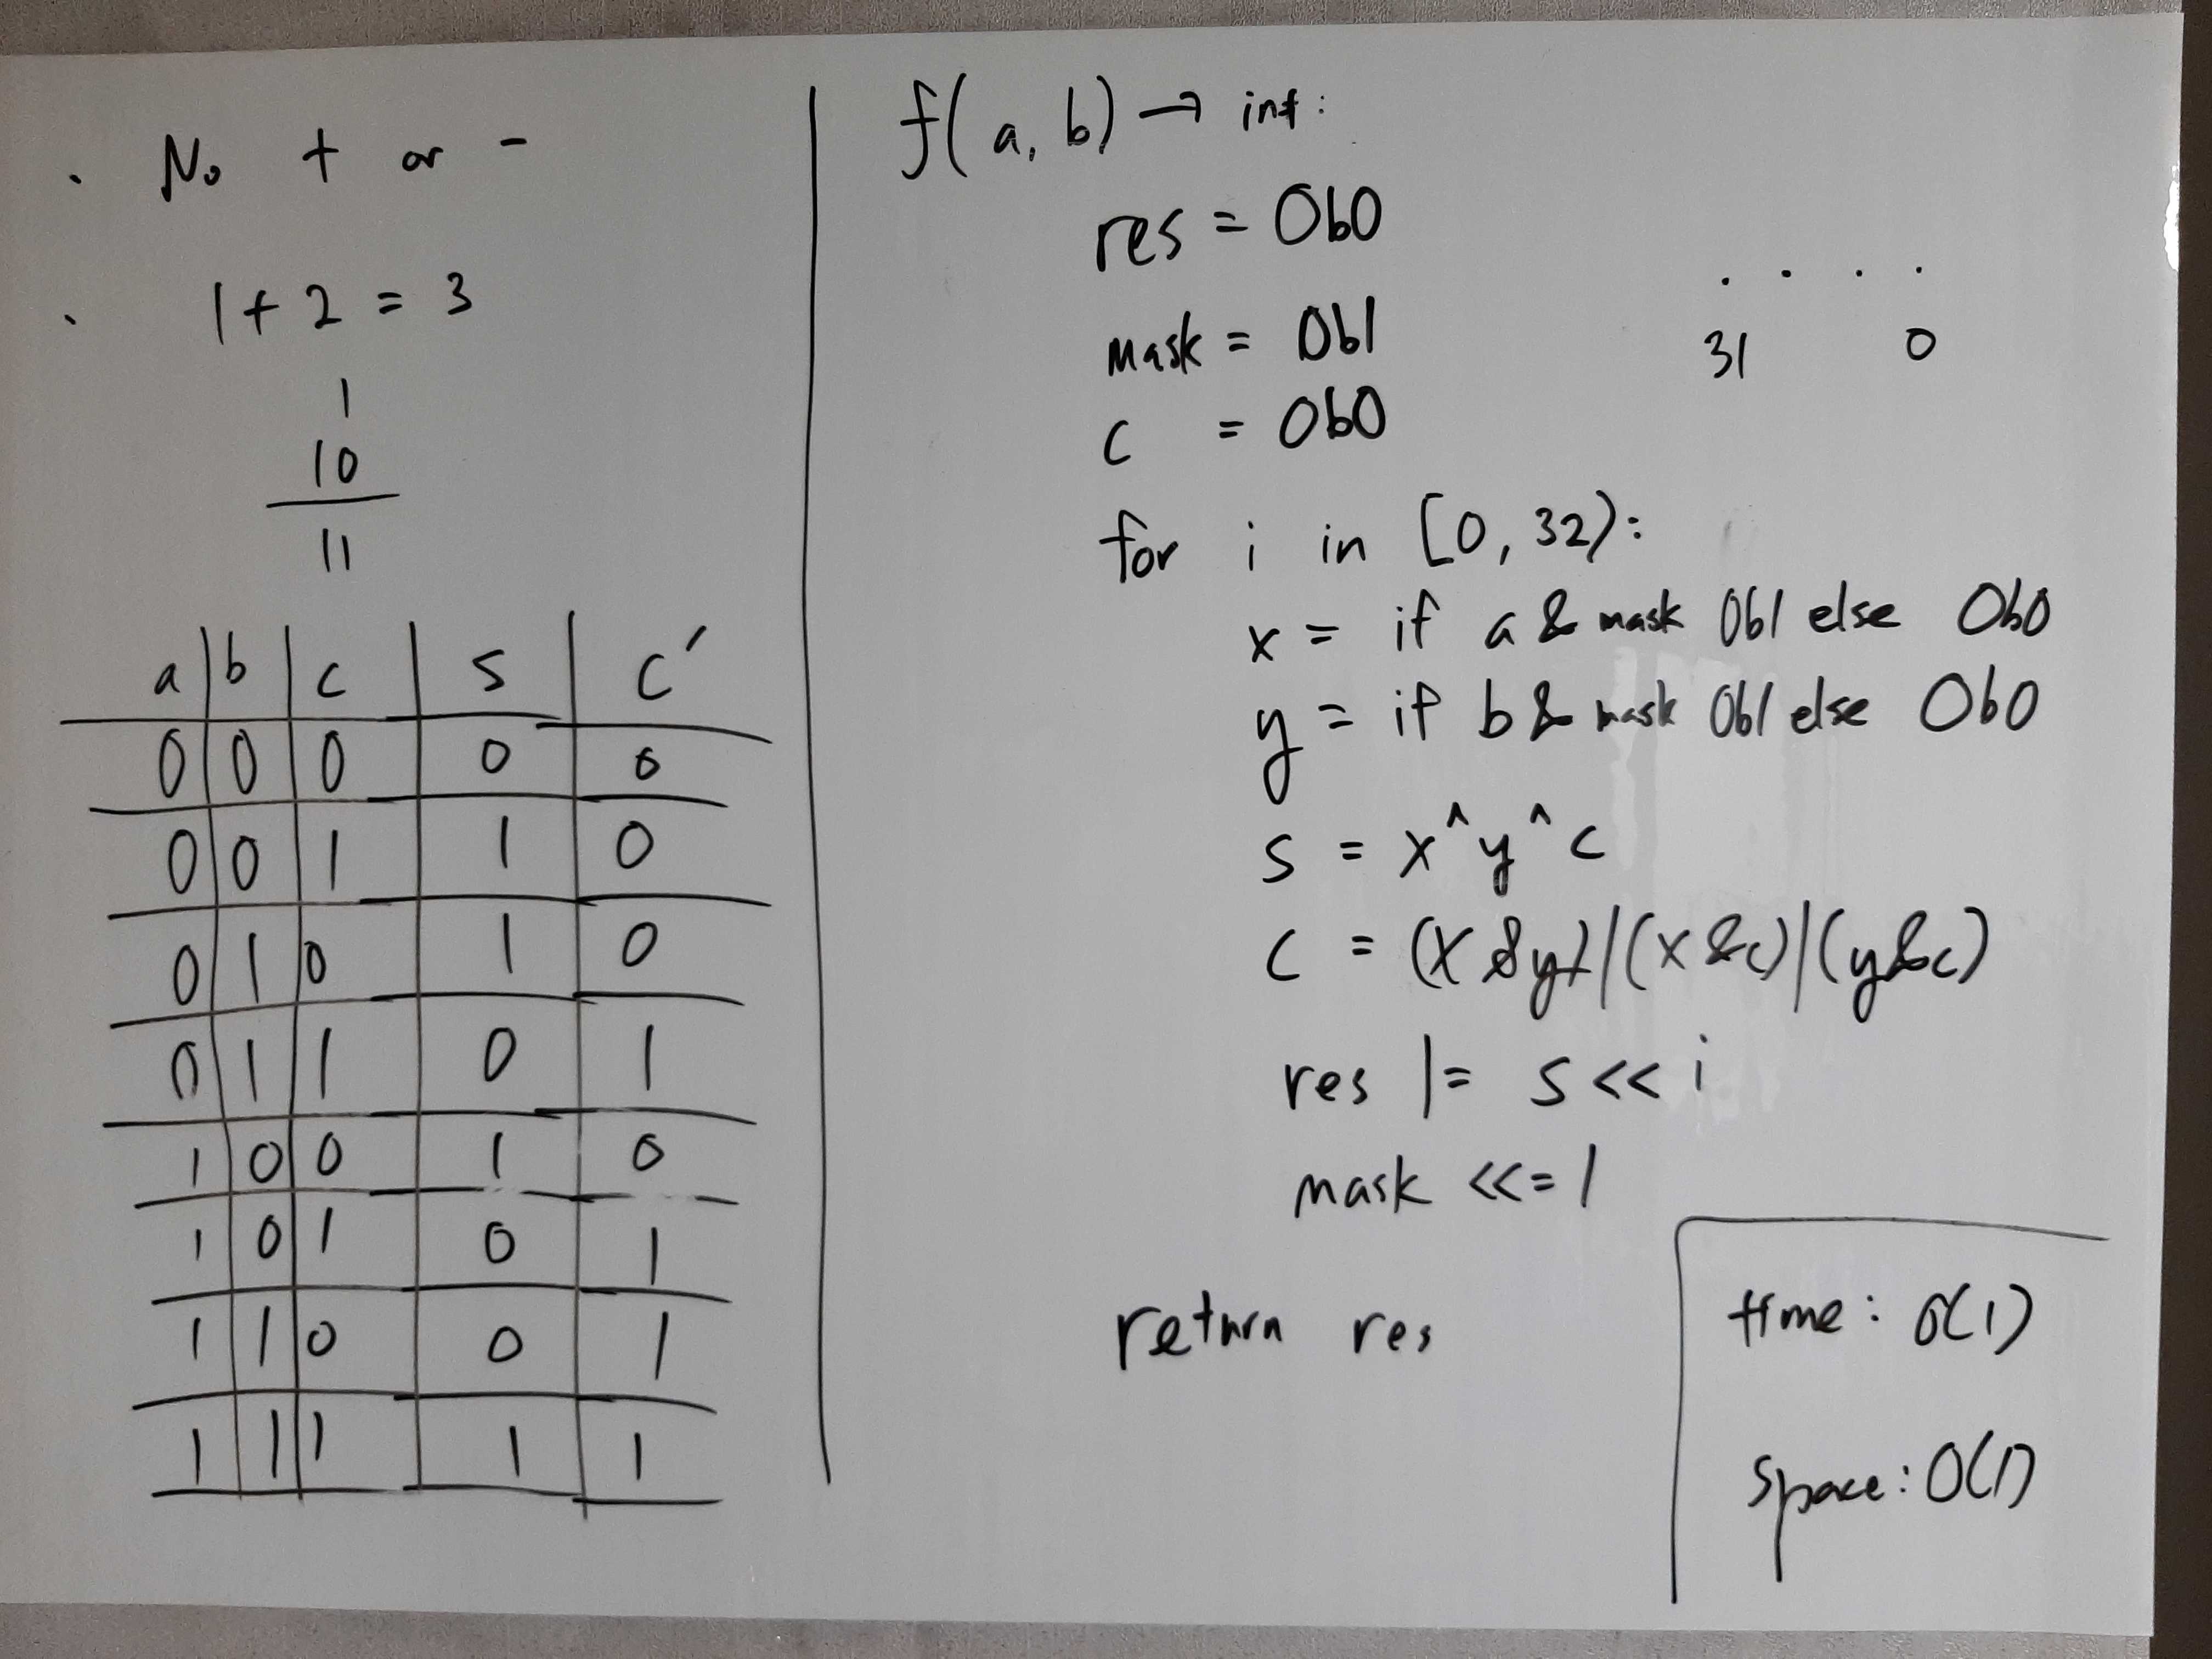 . No + or -
. 1 + 2 = 3
1
10
11
a b c s c'
0 0 0 0 0
0 0 1 1 0
0 1 0 1 0
0 1 1 0 1
1 0 0 1 0
1 0 1 0 1
1 1 0 0 1
1 1 1 1 1
f(a, b) → int:
res = 0b0
mask = 0b1
c = 0b0
. . . .
31 0
for i in [0, 32):
x = if a & mask 0b1 else 0b0
y = if b & mask 0b1 else 0b0
s = x^y^c
c = (x&y)|(x&c)|(y&c)
res |= s << i
mask <<= 1
return res
time: O(1)
space: O(1)